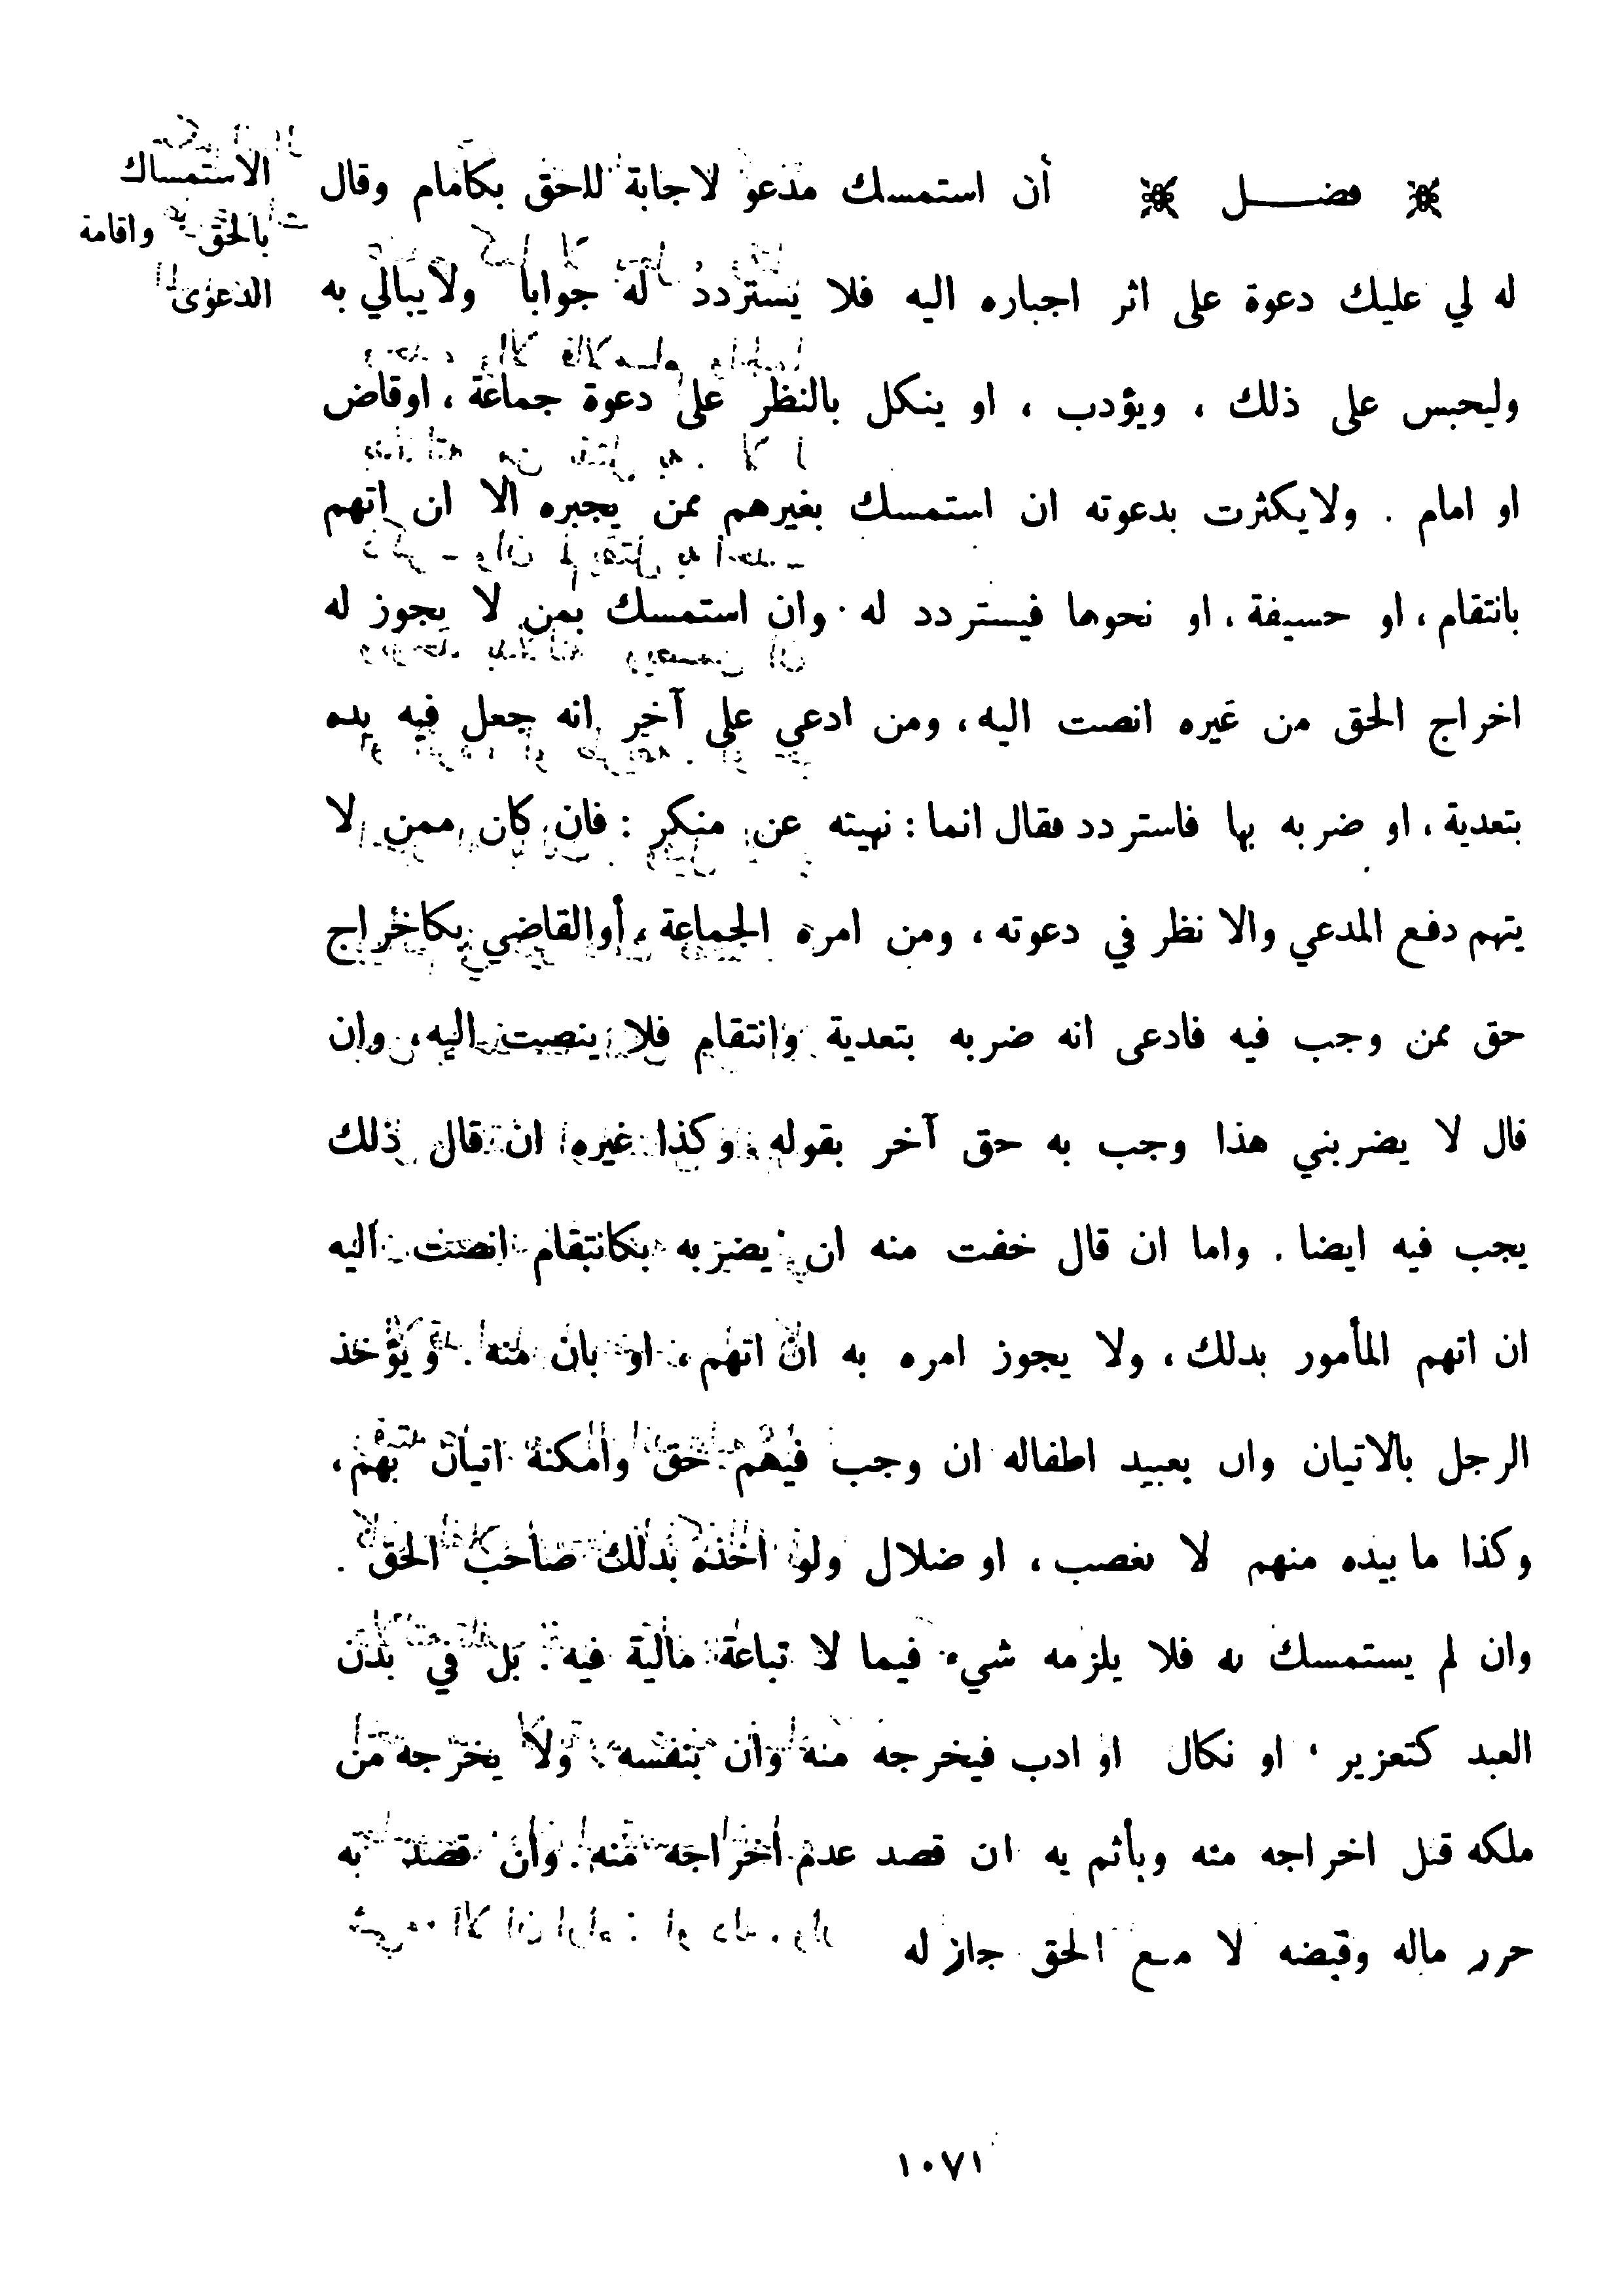 فصل أن استمسك مدعو لاجابة للحق بكامام وقال
الاستمساك
بالحق واقامة
الدعوى
له لي عليك دعوة على اثر اجباره اليه فلا يستردد له جوابا ولايبالي به
وليحبس على ذلك ، ويؤدب ، او ينكل بالنظر على دعوة جماعة ، اوقاض
او امام . ولايكثرت بدعوته ان استمسك بغيرهم ممن يجبره الا ان اتهم
بانتقام ، او حسيفة ، او نحوها فيستردد له . وان استمسك بمن لا يجوز له
اخراج الحق من غيره انصت اليه ، ومن ادعى على آخر انه جعل فيه يده
بتعدية ، او ضربه بها فاستردد فقال انما : نهيته عن منكر : فان كان ممن لا
يتهم دفع المدعي والا نظر في دعوته ، ومن امره الجماعة ، أوالقاضي بكاخراج
حق ممن وجب فيه فادعى انه ضربه بتعدية وانتقام فلا ينصت اليه ، وان
قال لا يضربني هذا وجب به حق آخر بقوله وكذا غيره ان قال ذلك
يجب فيه ايضا . واما ان قال خفت منه ان يضربه بكانتقام انصت اليه
ان اتهم المأمور بدلك ، ولا يجوز امره به ان اتهم ، او بان منه . ويؤخذ
الرجل بالاتيان وان بعبيد اطفاله ان وجب فيهم حق وامكنه اتيان بهم ،
وكذا ما بيده منهم لا بغصب ، او ضلال ولو اخذه بدلك صاحب الحق .
وان لم يستمسك به فلا يلزمه شيء فيما لا تباعة مالية فيه . بل في بدن
العبد كتعزير ، او نكال او ادب فيخرجه منه وان بنفسه . ولا يخرجه من
ملكه قبل اخراجه منه ويأثم به ان قصد عدم اخراجه منه . وان قصد به
حرر ماله وقبضه لا منع الحق جاز له
١٠٧١